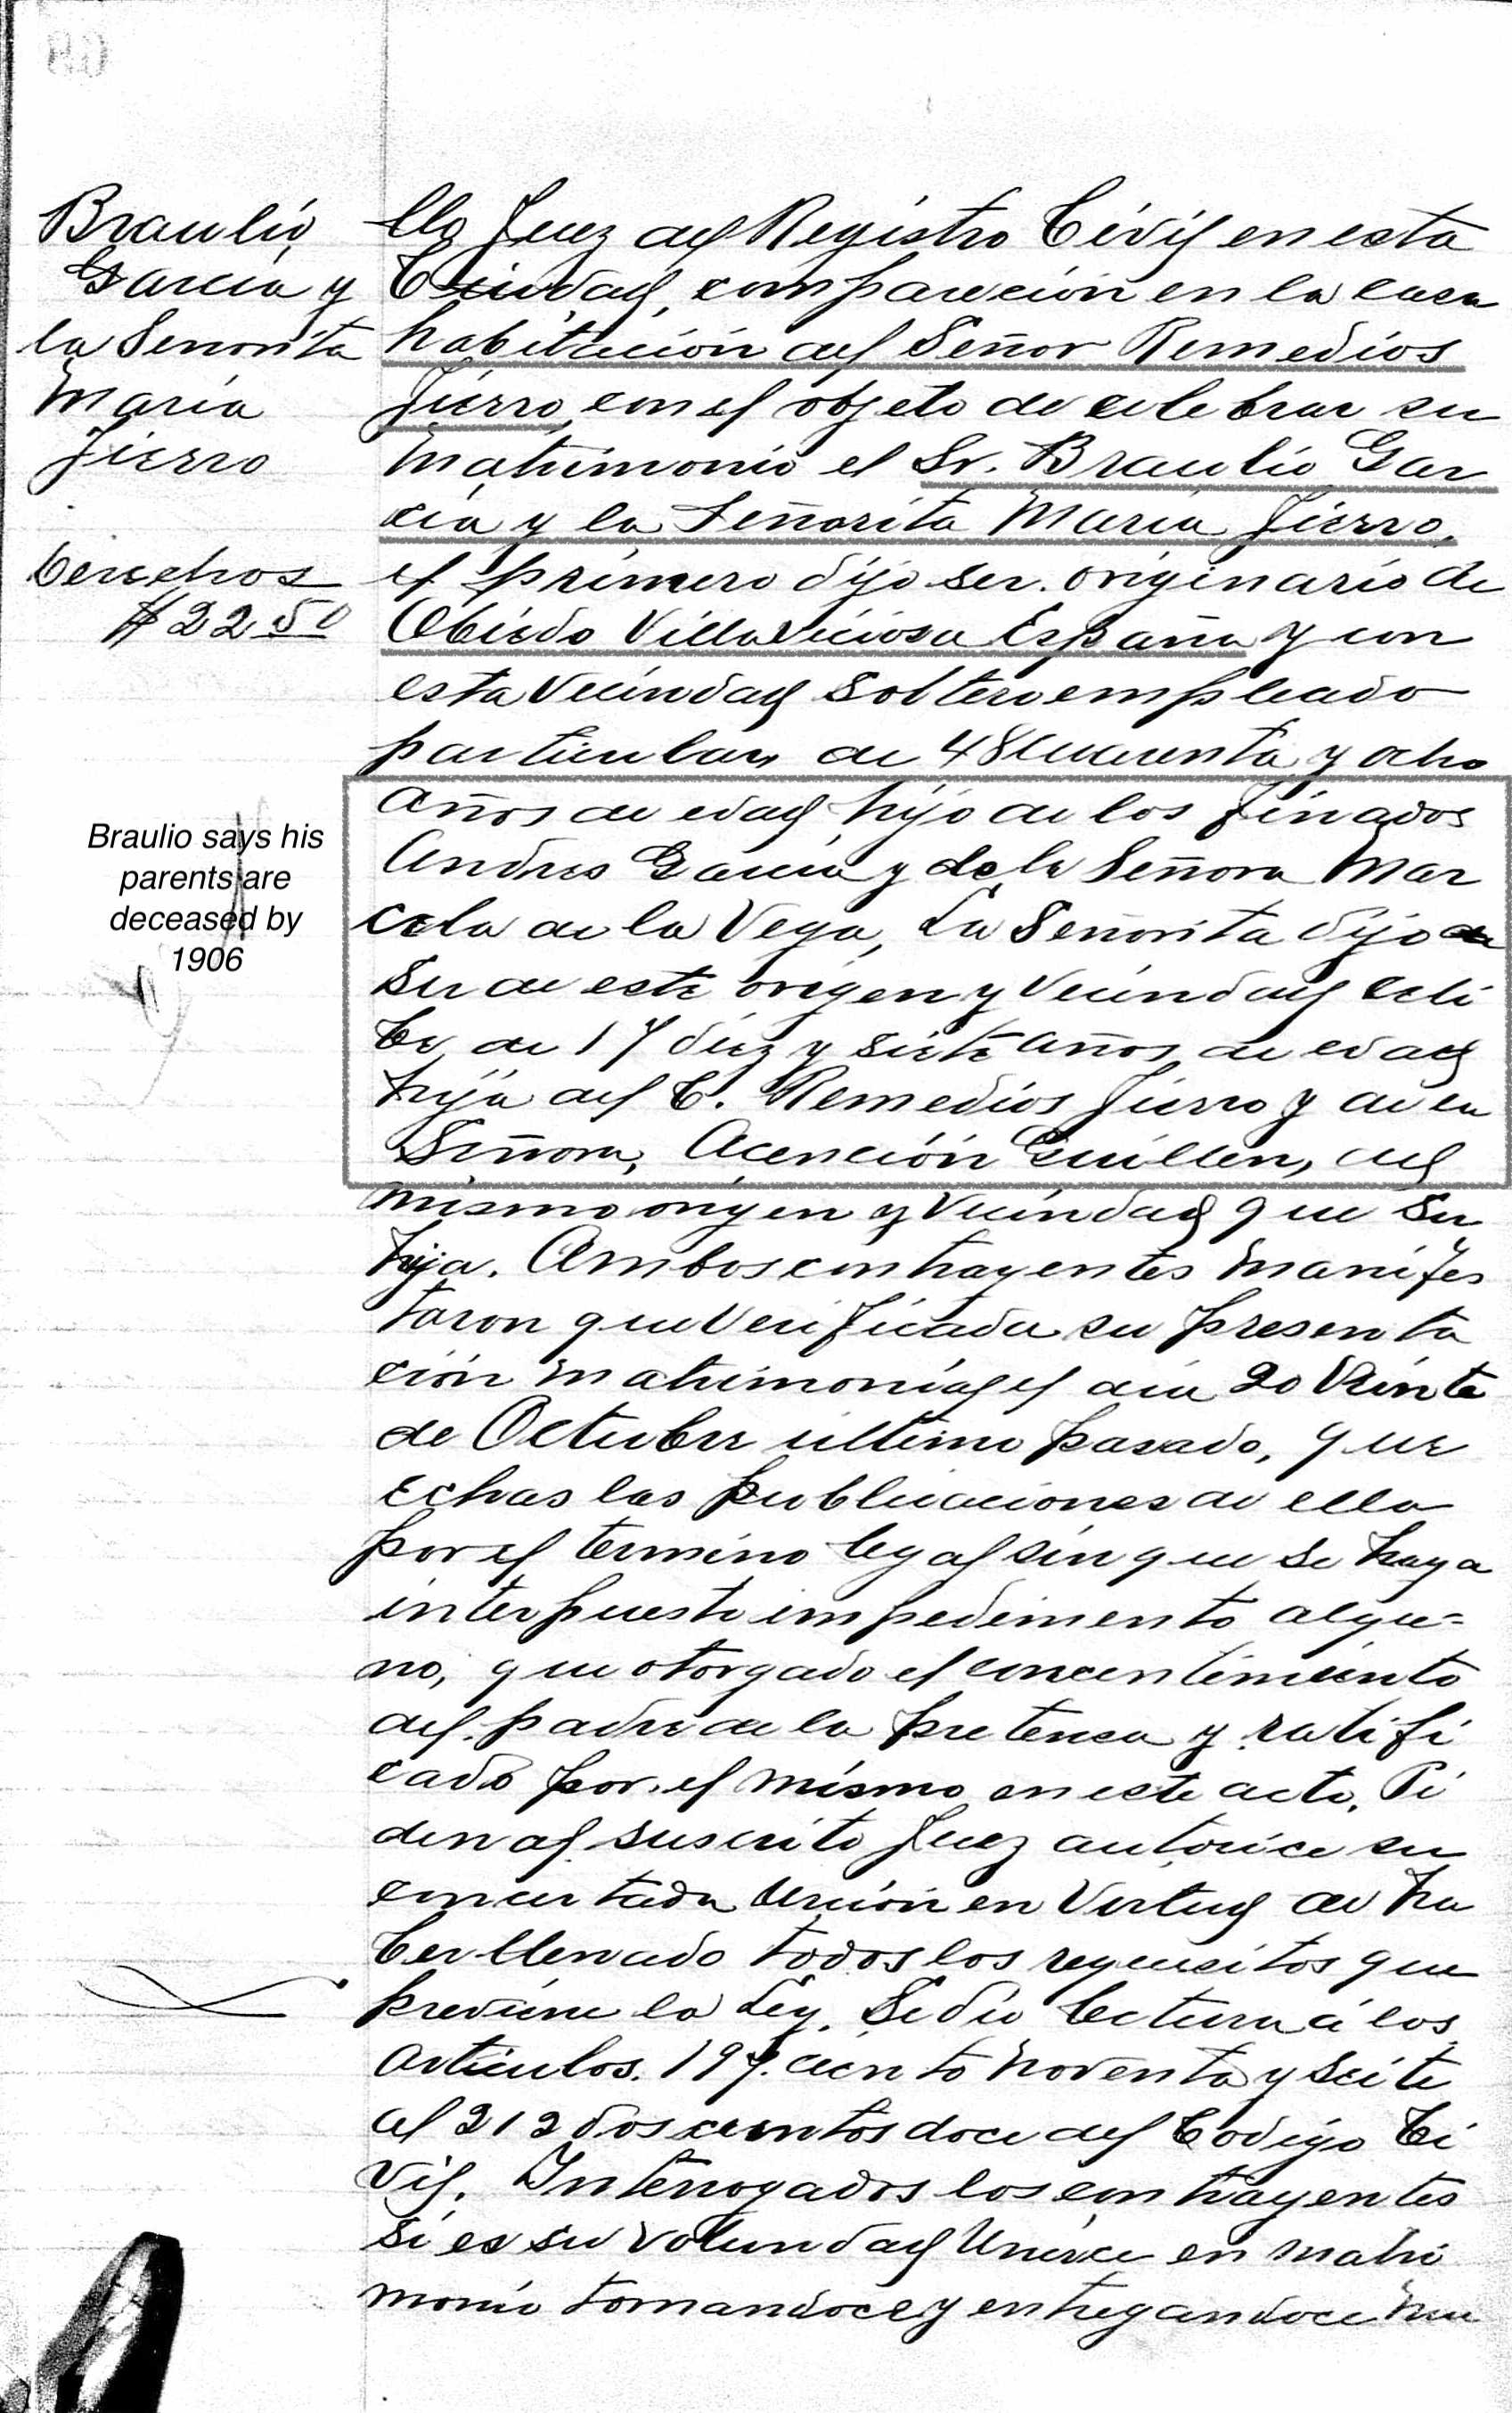 Braulio
García y
la Senorita
María
Fierro
Derechos
$22 50
Braulio says his
parents are
deceased by
1906
Juez del Registro Civil en esta
Ciudad, comparecion en la casa
habitación del Señor Remedios
Fierro, con el objeto de celebrar su
Matrimonio el Sr. Braulio Gar
cia y la Señorita María Fierro,
el primero dijo ser originario de
Obiedo Villaviciosa España y con
esta Vecindad Soltero empleado
particular, de 48 Cuarenta y ocho
años de edad hijo de los finados
Andres García y de la Señora Mar
cela de la Vega, La Señorita dijo
ser de este origen y Vecindad Céli
be, de 17 diez y siete años de edad
hija del C. Remedios Fierro y de la
Señora, Acención Guillen, del
mismo origen y Vecindad que su
hija. Ambos contrayentes manifes
taron que Verificada su presenta
ción matrimonial el día 20 Veinte
de Octubre ultimo pasado, que
echas las publicaciones de ella
por el termino legal sin que se haya
interpuesto impedimento algu=
no, que otorgado el concentimiento
del padre de la pretensa y ratifi
cado por el mismo en este acto, Pi
den al suscrito Juez autorice su
concertada Unión en Virtud de ha
ber llenado todos los requisitos que
previene la Ley. Se dio lectura á los
artículos. 197. ciento noventa y seite
al 212 doscientos doce del Codigo Ci
vil. Interrogados los contrayentes
si es su voluntad Unirce en matri
monio tomandoce y entregandoce mu